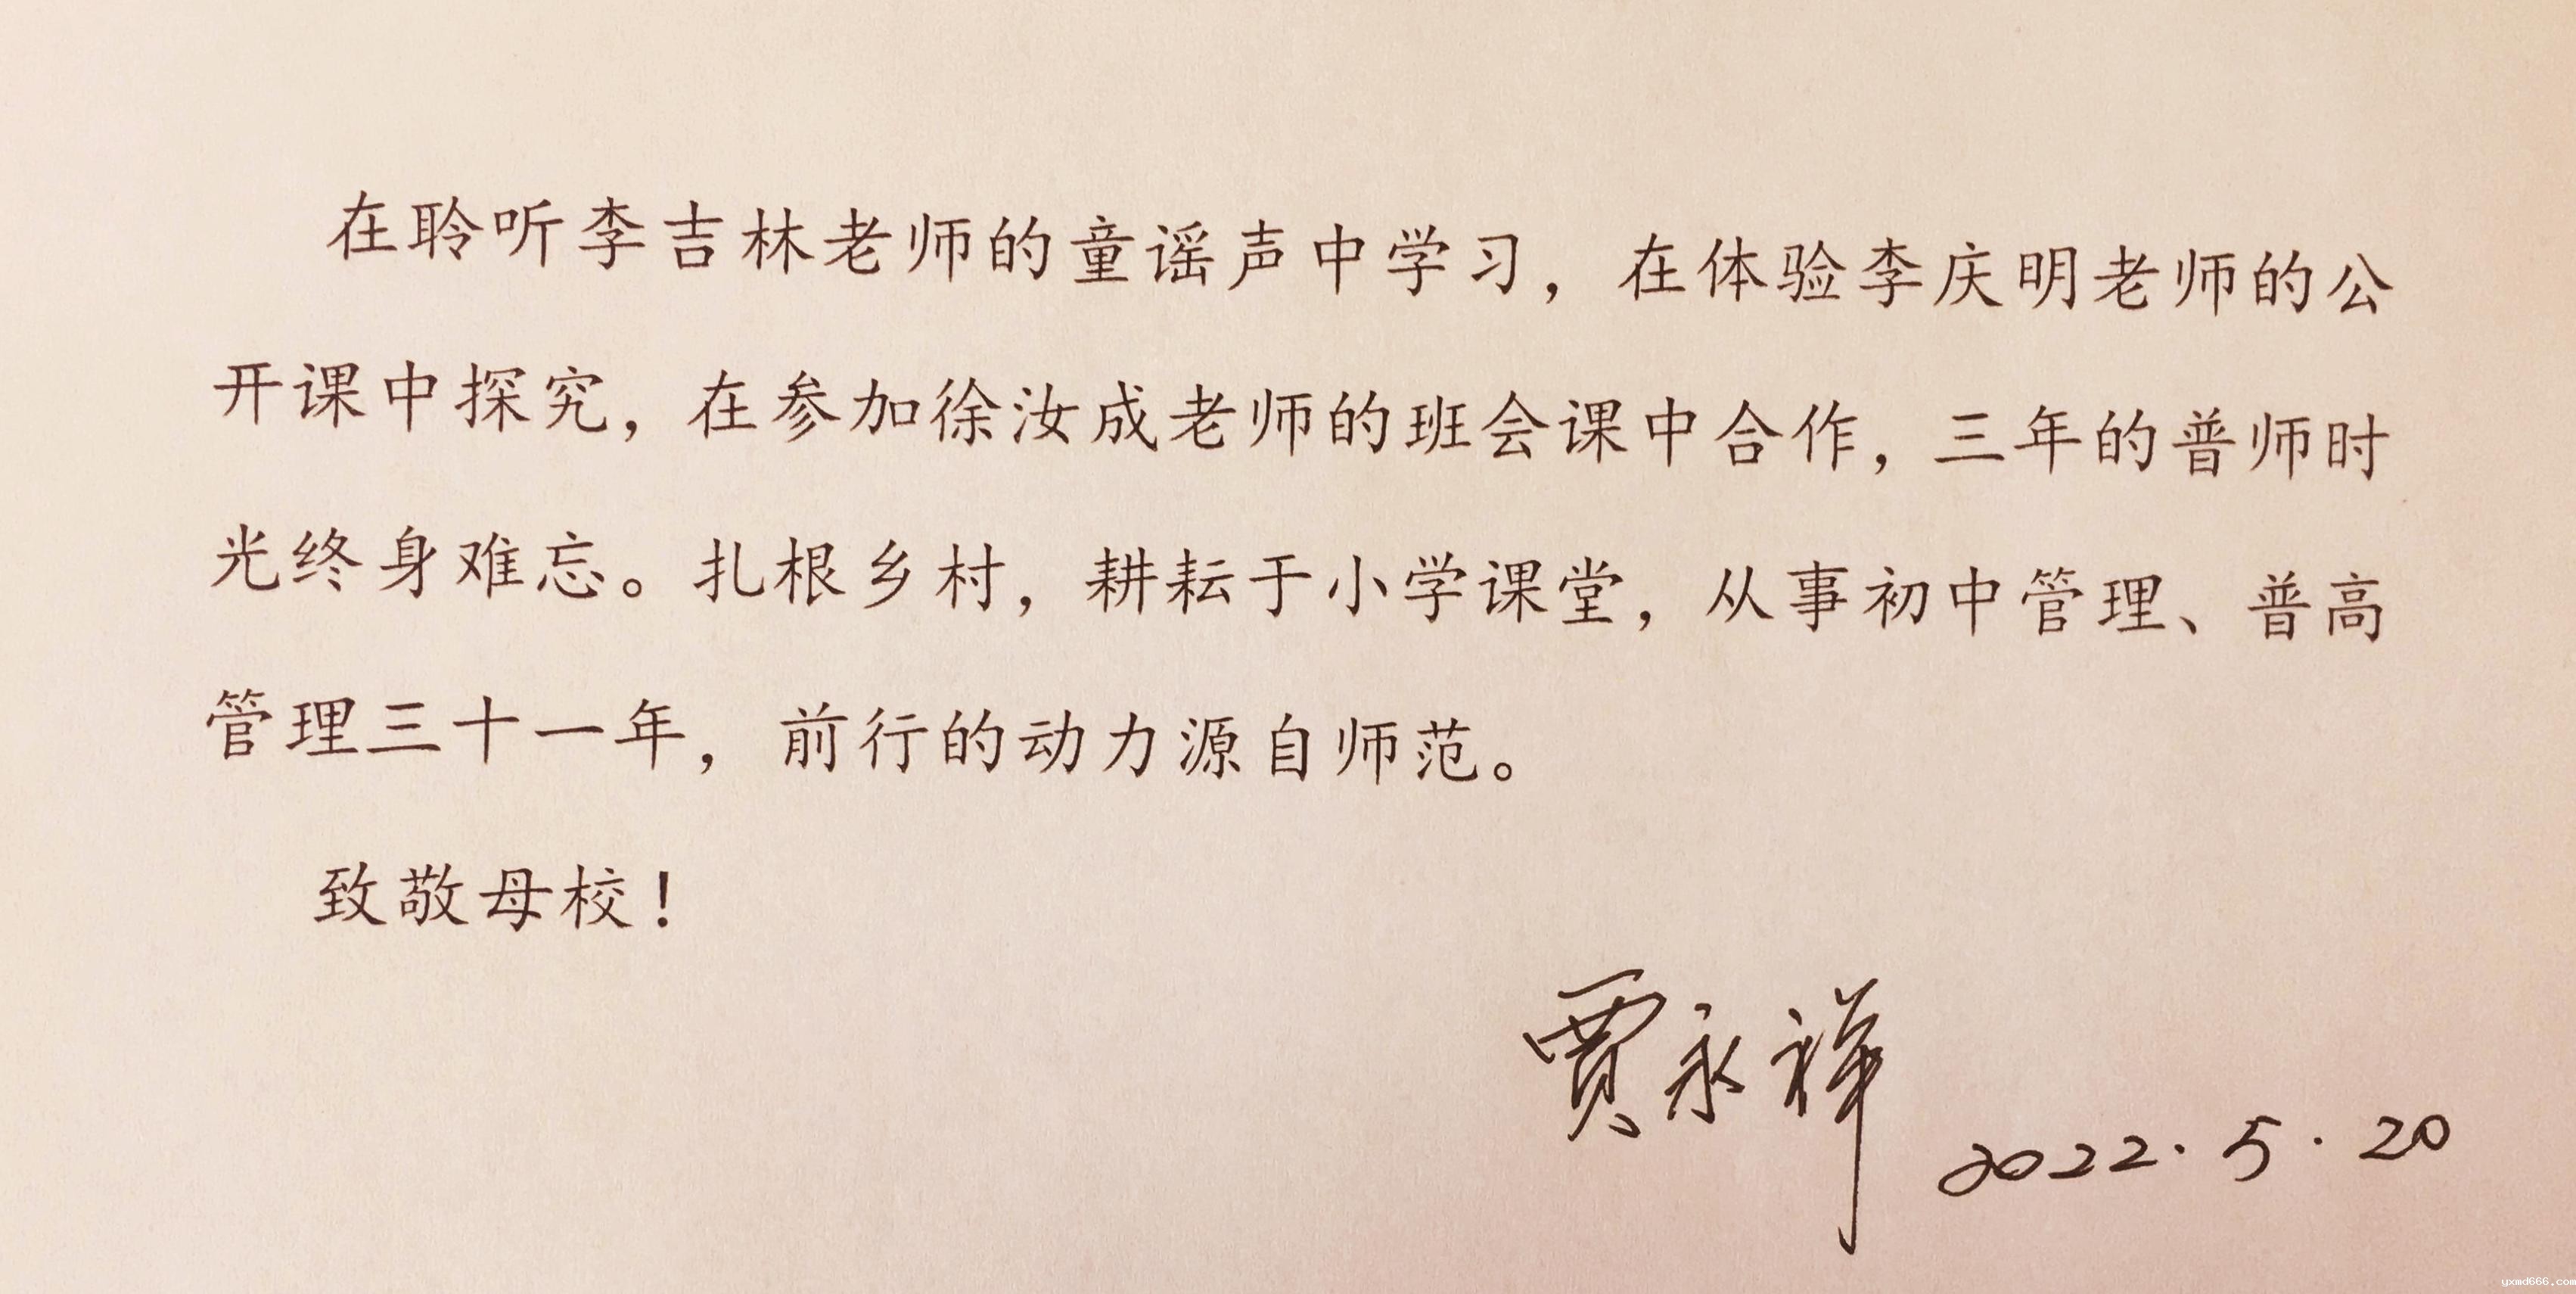 在聆听李吉林老师的童谣声中学习，在体验李庆明老师的公
开课中探究，在参加徐汝成老师的班会课中合作，三年的普师时
光终身难忘。扎根乡村，耕耘于小学课堂，从事初中管理、普高
管理三十一年，前行的动力源自师范。
致敬母校！
贾永祥
2022.5.20
yxmd666.com